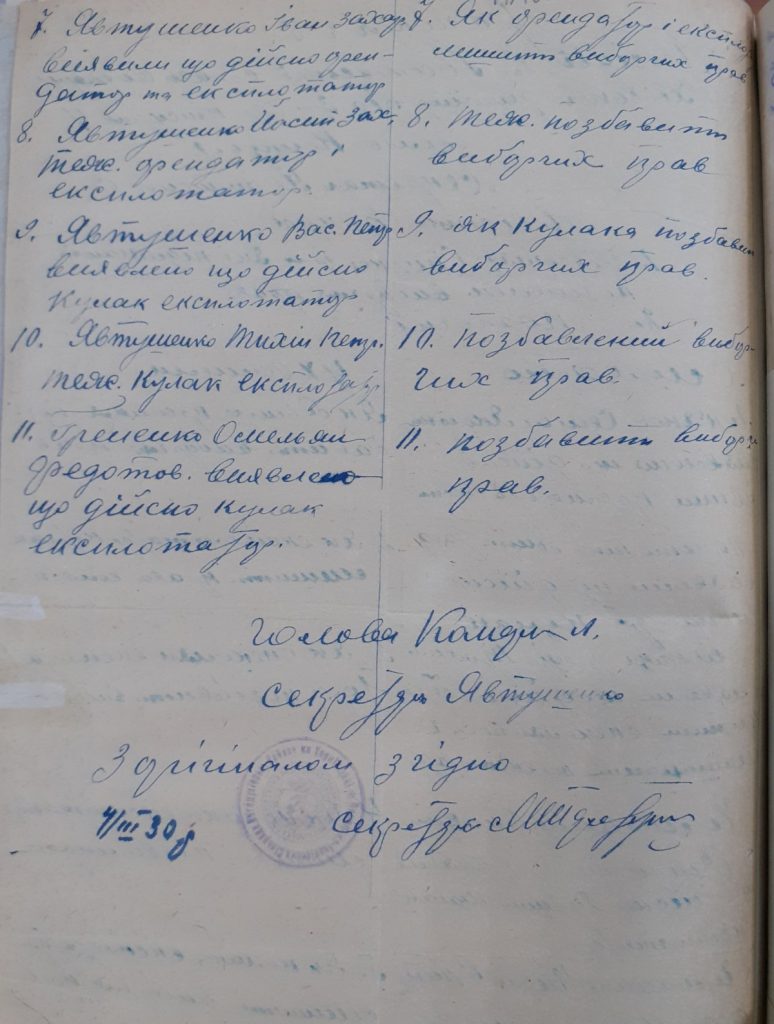 7. Явтушенко Іван Захар.
виявили що дійсно орен-
датор та експлотатор
8. Явтушенко Йосип Зах.
теж. орендатор і
експлотатор.
9. Явтушенко Вас. Петр.
виявлено що дійсно
Кулак експлотатор
10. Явтушенко Тихін Петр.
теж. Кулак експлотатор
11. Гриненко Омельян
Федотов. виявлено
що дійсно кулак
експлотатор.
7. Як орендатор і експлот
лишить виборчих прав
8. теж. позбавити
виборчих прав
9. як Кулака позбавит
виборчих прав.
10. позбавлений вибор-
чих прав.
11. позбавити виборч
прав.
Голова
секретарь Явтушенко
З орігіналом згідно
4/III 30 р
секретарь